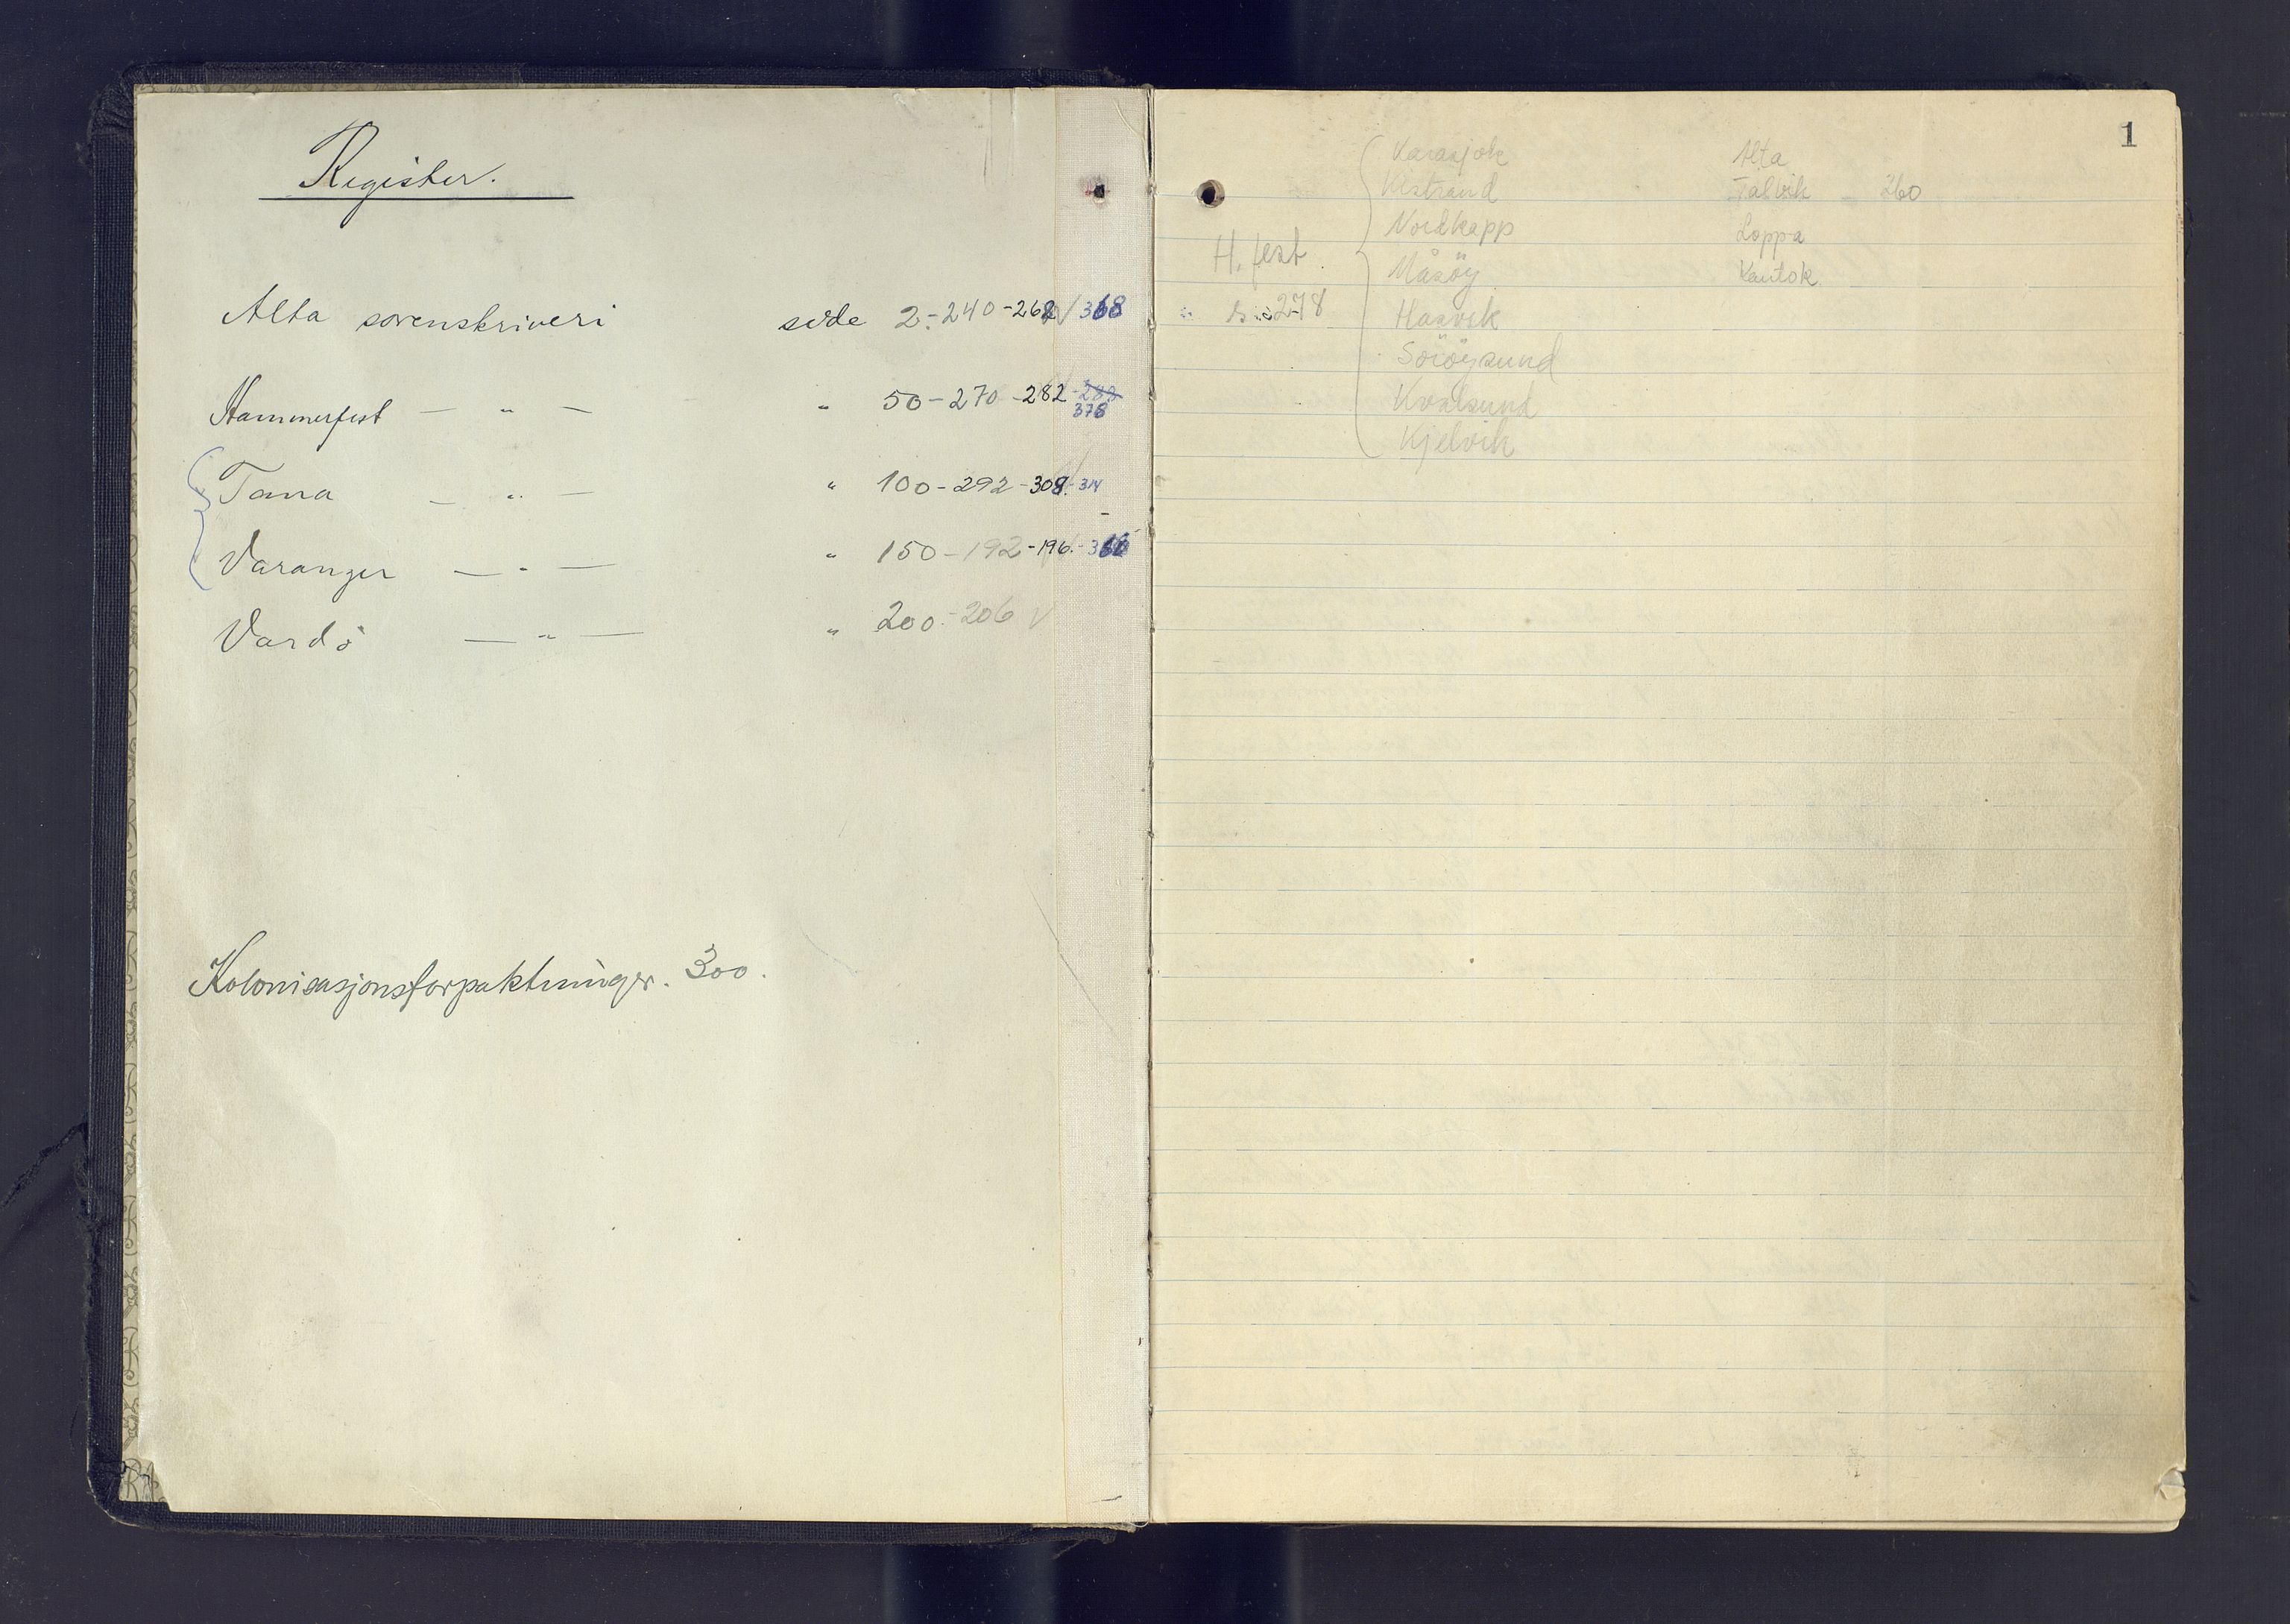 Register.
Alta sorenskriveri side 2-240-268 √ 368
Hammerfest — " — " 50-270-282-288
378
Tana — " — " 100-292-308-314
Varanger — " — " 150-192-196-
Vardö — " — " 200-206 √
Kolonisasjonsforpaktninger. 300.
1
Karasjok Alta
Kistrand Talvik - 260
Nordkapp Loppa
H.fest
Måsöy Kautok
" s. 278 Hasvik
Söröysund
Kvalsund
Kjelvik